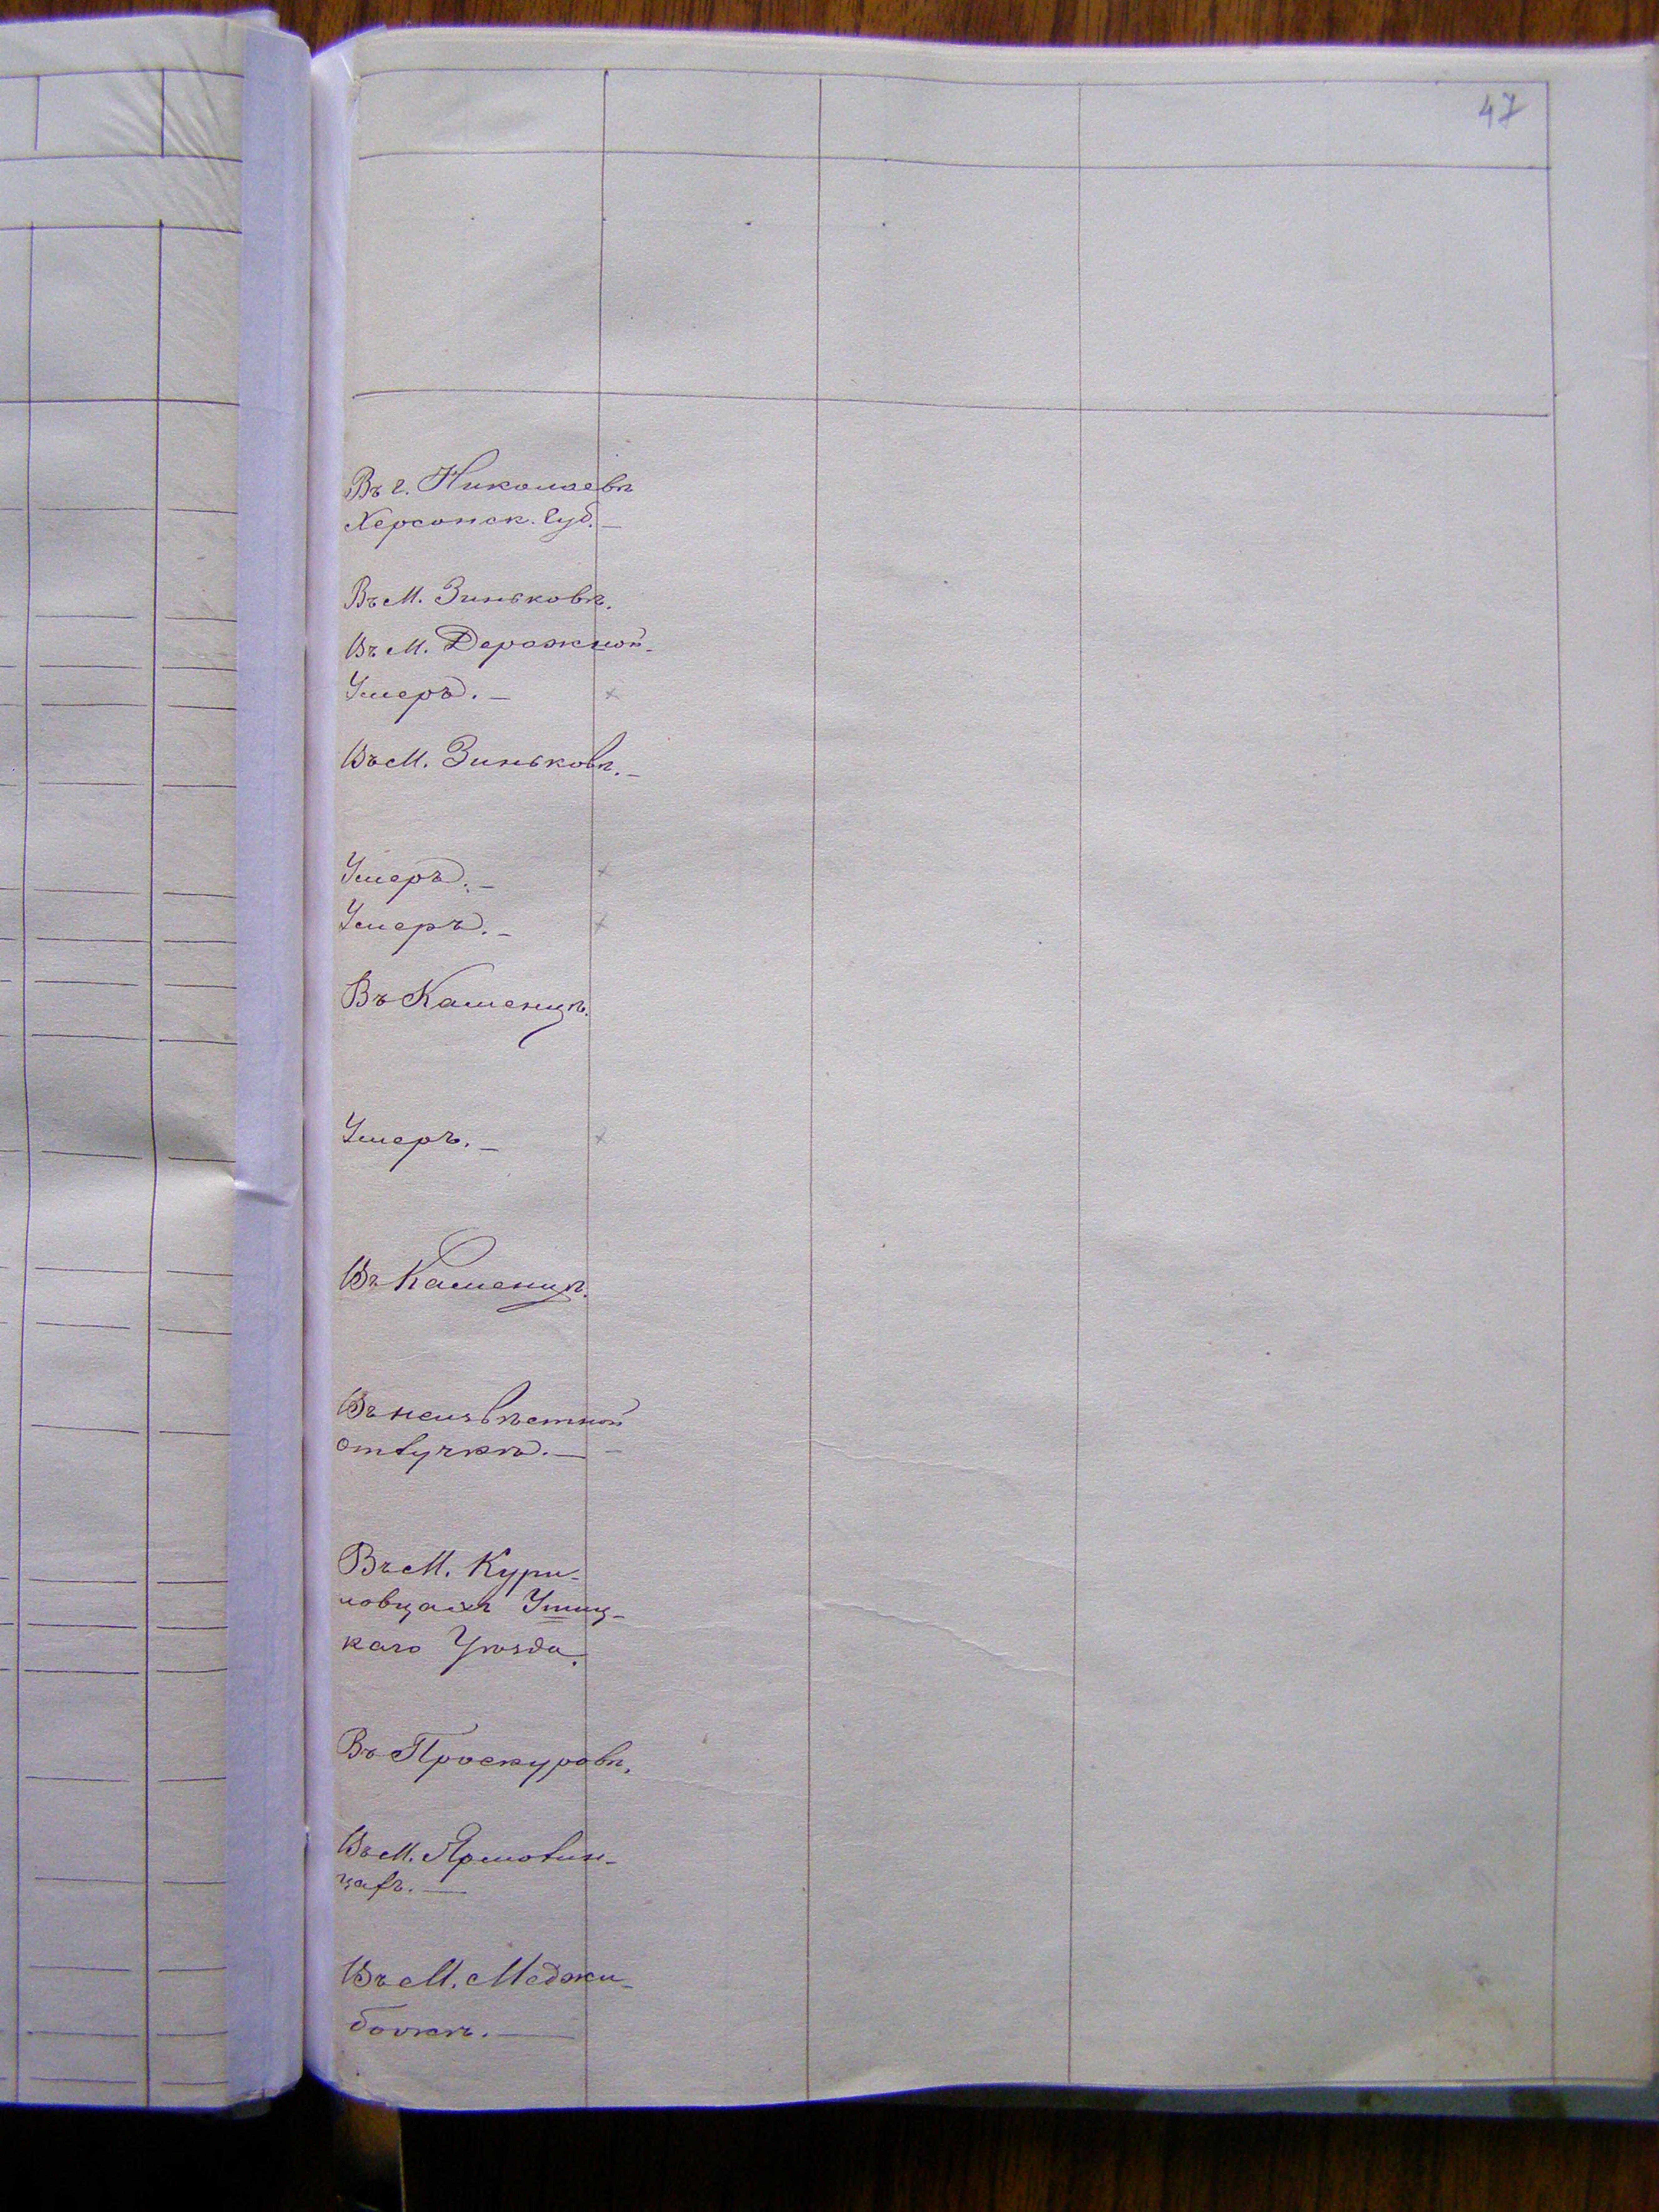 47
Въ г. Николаевѣ
Херсонск. Губ. —
Въ М. Зиньковѣ.
Въ М. Деражной —
Умеръ. —
Въ М. Зиньковѣ. —
Умеръ. —
Умеръ. —
Въ Каменцѣ.
Умеръ. —
Въ Каменцѣ.
Въ неизвѣстной
отлучкѣ. —
Въ М. Кури-
ловцахъ Ушиц-
каго Уѣзда.
Въ Проскуровѣ.
Въ М. Ярмолин-
цахъ. —
Въ М. Меджи-
божѣ. —